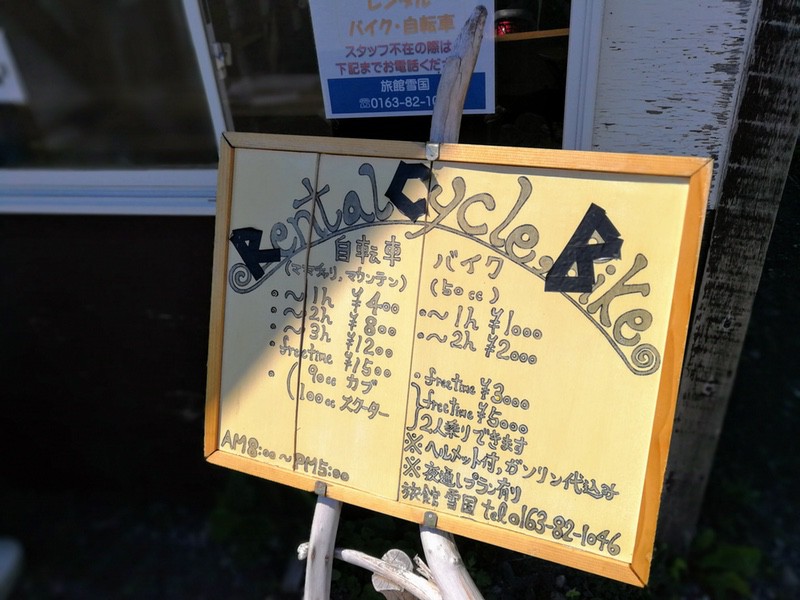 レンタル
バイク・自転車
スタッフ不在の際は
下記までお電話くだ
旅館雪国
☏0163-82-10
Rental Cycle Bike
自転車
(ママチャリ,マウンテン)
・〜1h ¥400
・〜2h ¥800
・〜3h ¥1200
・freetime ¥1500
バイク
(50cc)
・〜1h ¥1000
・〜2h ¥2000
・freetime ¥3000
・(90cc カブ
100cc スクーター
}freetime ¥5000
2人乗りできます
※ヘルメット付,ガソリン代込み
※夜通しプラン有り
AM8:00〜PM5:00
旅館 雪国 tel 0163-82-1046